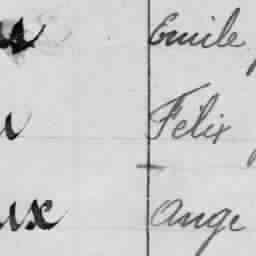 Emile
Felix
ux Ange